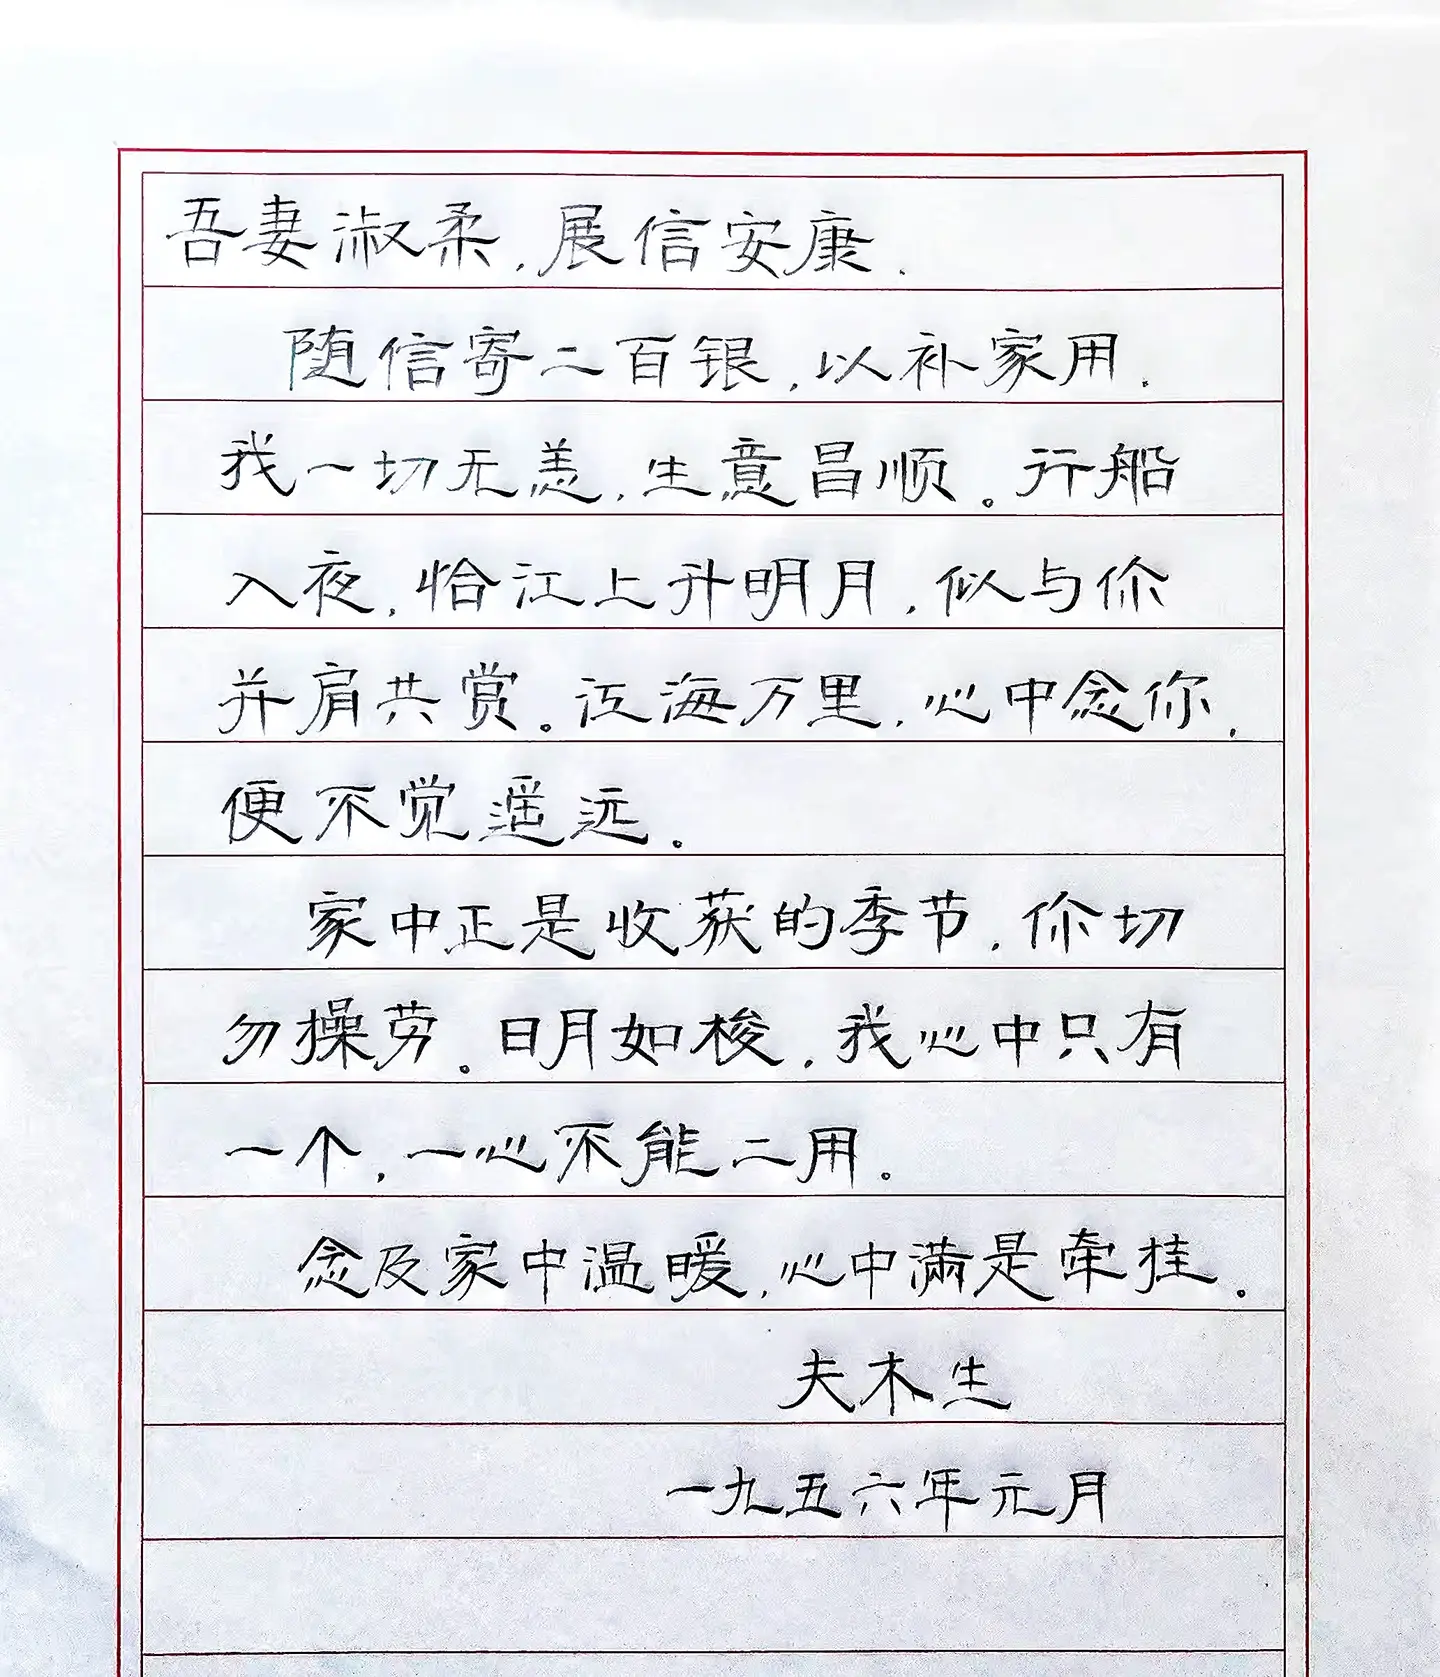 吾妻淑柔,展信安康.
随信寄二百银,以补家用.
我一切无恙,生意昌顺。行船
入夜,恰江上升明月,似与你
并肩共赏。江海万里,心中念你,
便不觉遥远。
家中正是收获的季节,你切
勿操劳。日月如梭,我心中只有
一个,一心不能二用。
念及家中温暖,心中满是牵挂。
夫木生
一九五六年元月